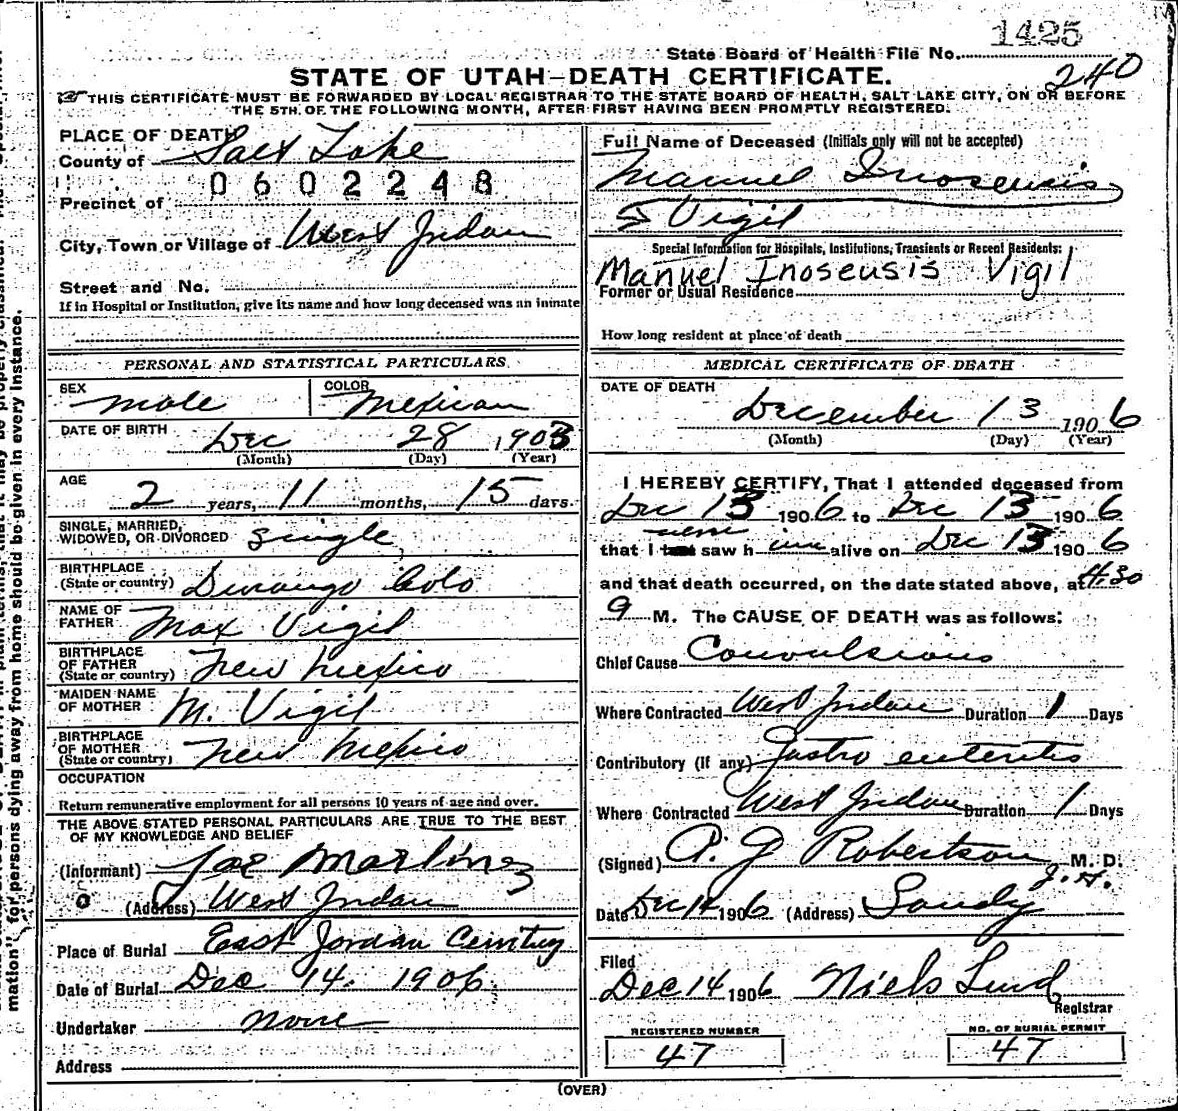 1425
State Board of Health File No.
240
STATE OF UTAH—DEATH CERTIFICATE.
THIS CERTIFICATE MUST BE FORWARDED BY LOCAL REGISTRAR TO THE STATE BOARD OF HEALTH, SALT LAKE CITY, ON OR BEFORE
THE 5TH. OF THE FOLLOWING MONTH, AFTER FIRST HAVING BEEN PROMPTLY REGISTERED.
PLACE OF DEATH
County of Salt Lake
0602248
Precinct of
City, Town or Village of West Jordan
Street and No.
If in Hospital or Institution, give its name and how long deceased was an inmate
PERSONAL AND STATISTICAL PARTICULARS
SEX male COLOR Mexican
DATE OF BIRTH Dec 28 1903
(Month) (Day) (Year)
AGE 2 years, 11 months, 15 days.
SINGLE, MARRIED,
WIDOWED, OR DIVORCED single
BIRTHPLACE
(State or country) Durango Colo
NAME OF
FATHER Max Vigil
BIRTHPLACE
OF FATHER
(State or country) New Mexico
MAIDEN NAME
OF MOTHER M. Vigil
BIRTHPLACE
OF MOTHER
(State or country) New Mexico
OCCUPATION
Return remunerative employment for all persons 10 years of age and over.
THE ABOVE STATED PERSONAL PARTICULARS ARE TRUE TO THE BEST
OF MY KNOWLEDGE AND BELIEF
(Informant) Joe Martinez
(Address) West Jordan
Place of Burial East Jordan Cemtury
Date of Burial Dec 14. 1906
Undertaker none
Address
Full Name of Deceased (Initials only will not be accepted)
Manuel Inosensis
Vigil
Special Information for Hospitals, Institutions, Transients or Recent Residents:
Manuel Inosensis Vigil
Former or Usual Residence
How long resident at place of death
MEDICAL CERTIFICATE OF DEATH
DATE OF DEATH
December 13 1906
(Month) (Day) (Year)
I HEREBY CERTIFY, That I attended deceased from
Dec 13 1906 to Dec 13 1906
that I never saw h im alive on Dec 13 1906
and that death occurred, on the date stated above, at 4.30
M. The CAUSE OF DEATH was as follows:
Chief Cause Convulsions
Where Contracted West Jordan Duration 1 Days
Contributory (if any) Gastro enteritis
Where Contracted West Jordan Duration 1 Days
(Signed) A. J Robertson M. D.
Date Dec 14 1906 (Address) Sandy
Filed
Dec 14 1906 Niels Lind
Registrar
REGISTERED NUMBER
47
NO. OF BURIAL PERMIT
47
(OVER)
mation" for persons dying away from home should be given in every instance.